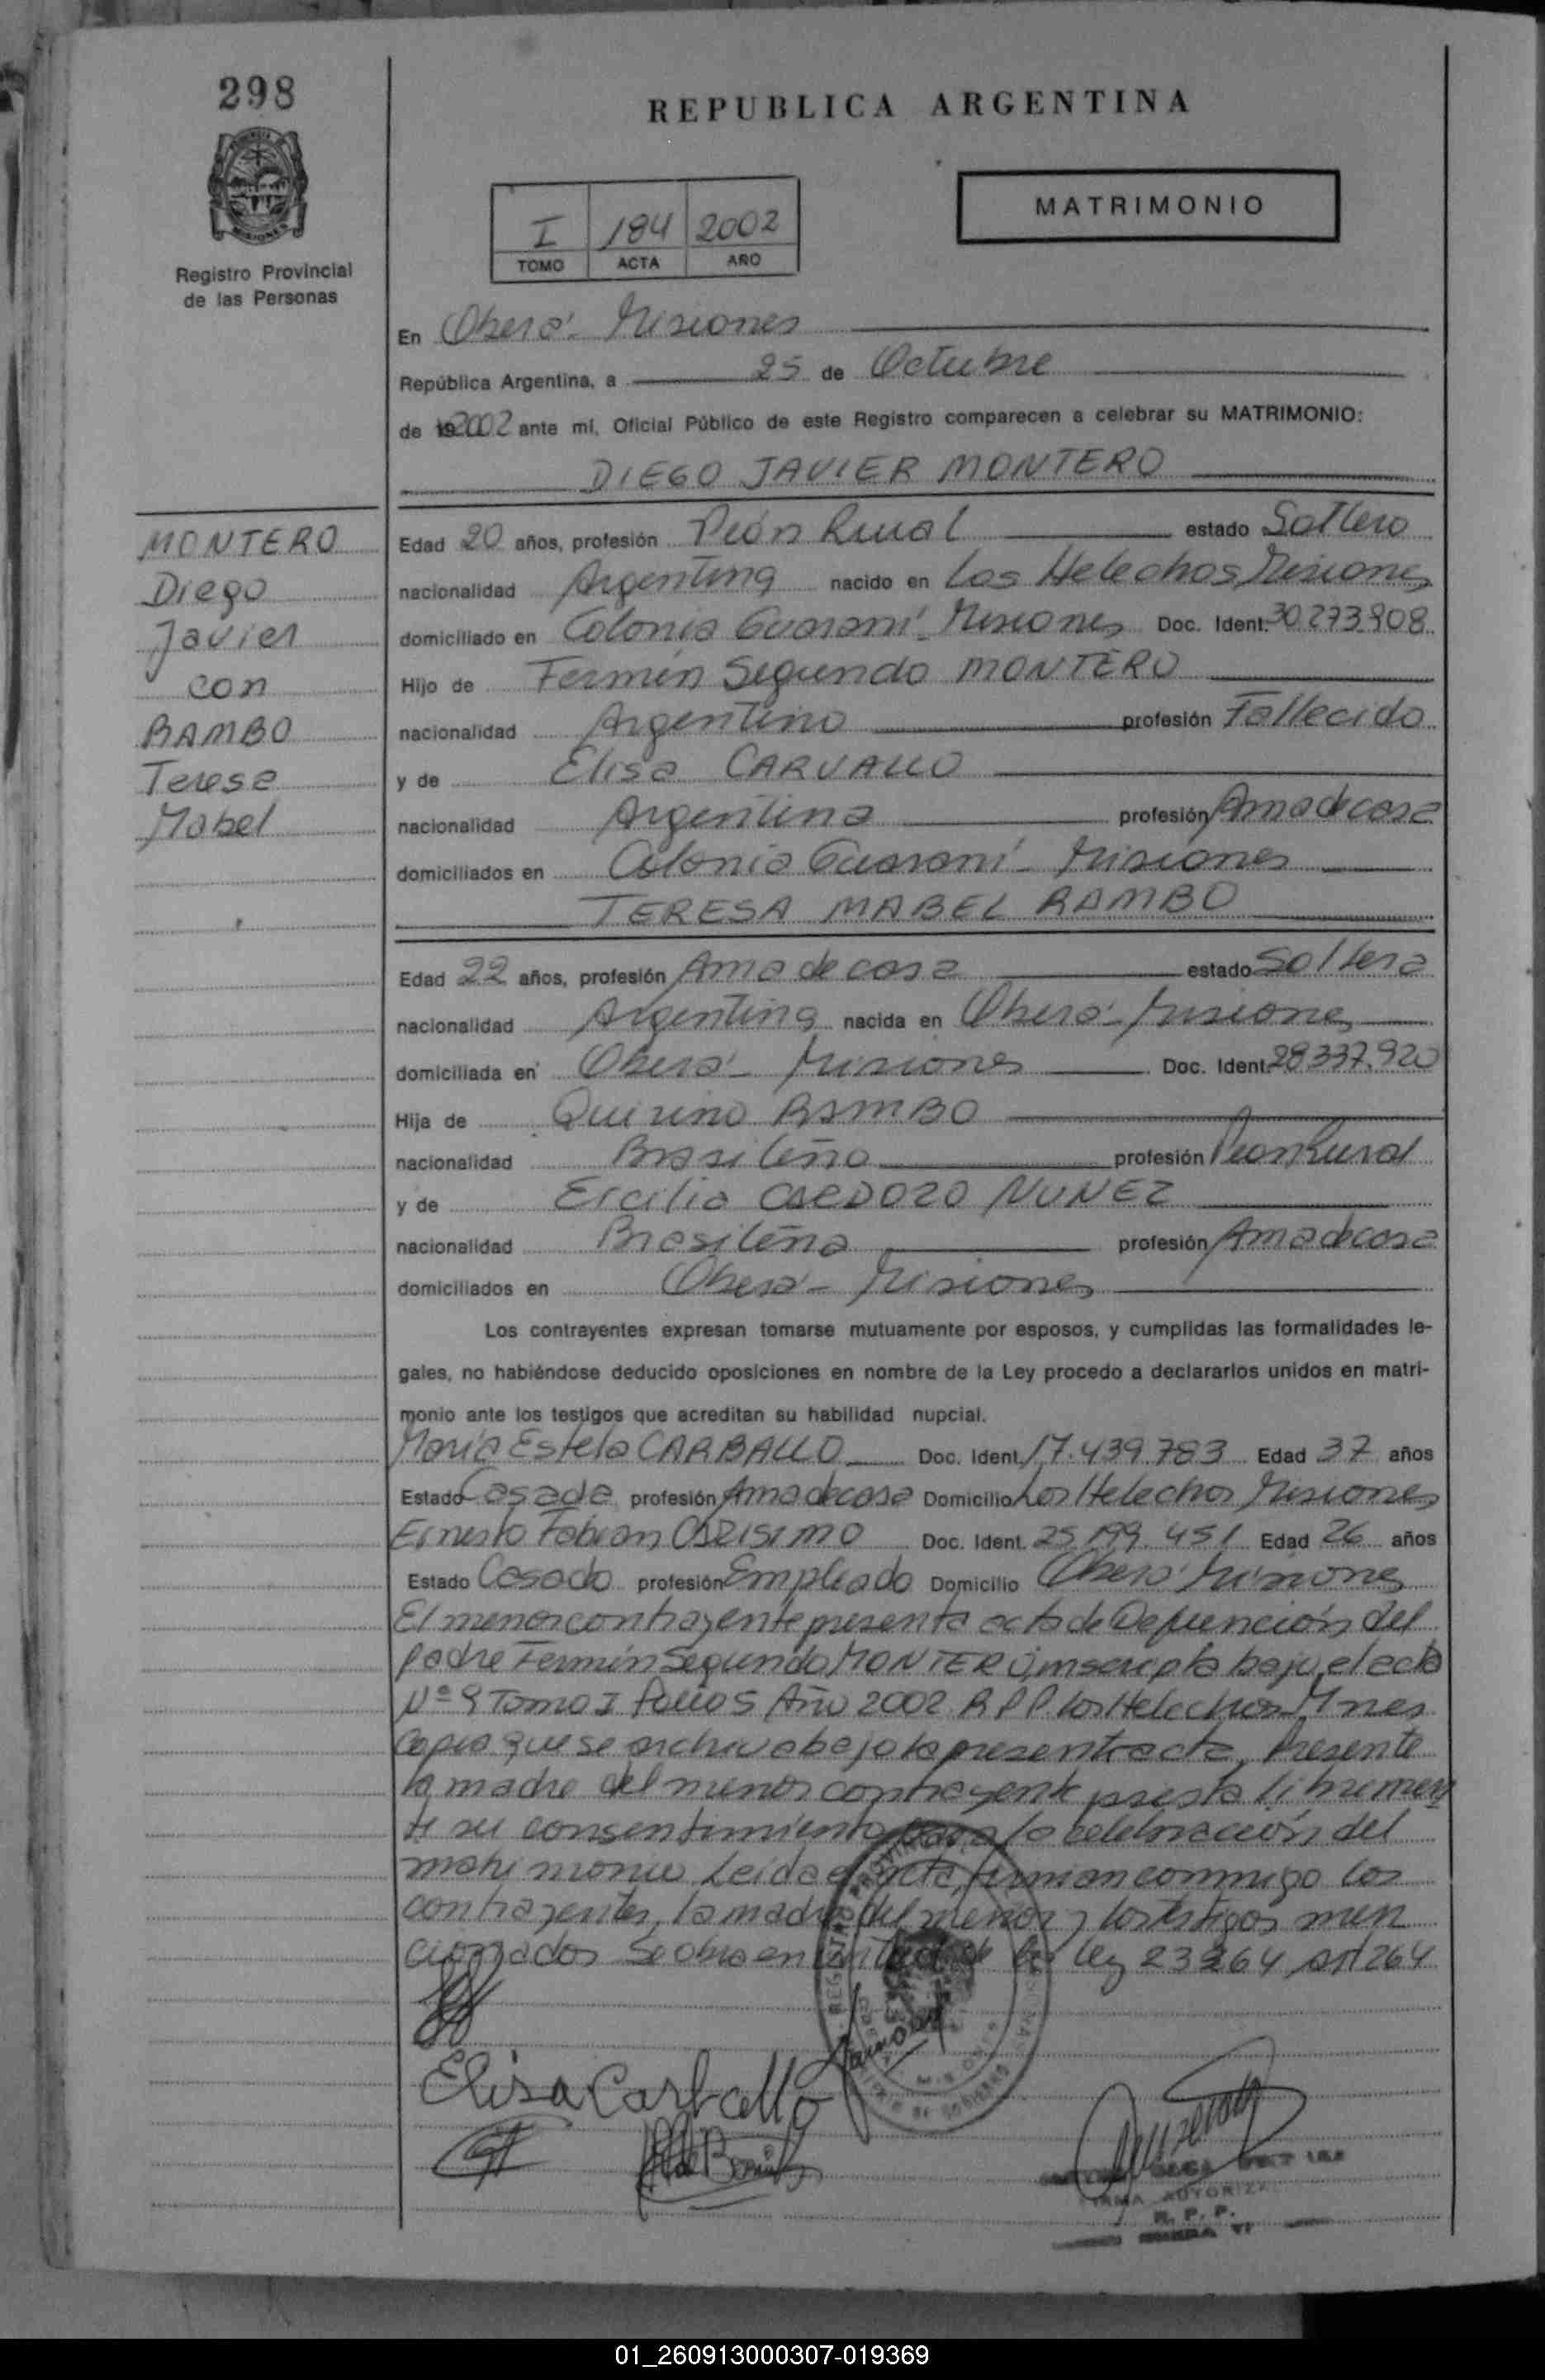 298
REPUBLICA ARGENTINA
Registro Provincial
de las Personas
I 184 2002
TOMO ACTA AÑO
MATRIMONIO
En Oberá - Misiones
República Argentina, a 25 de Octubre
de 192002 ante mí, Oficial Público de este Registro comparecen a celebrar su MATRIMONIO:
DIEGO JAVIER MONTERO
MONTERO
Diego
Javier
con
RAMBO
Teresa
Mabel
Edad 20 años, profesión Peón Rural estado Soltero
nacionalidad Argentina nacido en Los Helechos, Misiones
domiciliado en Colonia Guaraní - Misiones Doc. Ident. 30.273.908
Hijo de Fermín Segundo MONTERO
nacionalidad Argentino profesión Fallecido
y de Elisa CARVALLO
nacionalidad Argentina profesión Ama de casa
domiciliados en Colonia Guaraní - Misiones
TERESA MABEL RAMBO
Edad 22 años, profesión Ama de casa estado Soltera
nacionalidad Argentina nacida en Oberá - Misiones
domiciliada en Oberá - Misiones Doc. Ident. 28.337.920
Hija de Quirino RAMBO
nacionalidad Brasileño profesión Peon Rural
y de Ercilia CARDOZO NUNEZ
nacionalidad Brasileña profesión Ama de casa
domiciliados en Oberá - Misiones
Los contrayentes expresan tomarse mutuamente por esposos, y cumplidas las formalidades le-
gales, no habiéndose deducido oposiciones en nombre de la Ley procedo a declararlos unidos en matri-
monio ante los testigos que acreditan su habilidad nupcial.
María Estela CARBALLO Doc. Ident. 17.439.783 Edad 37 años
Estado Casada profesión Ama de casa Domicilio Los Helechos Misiones
Ernesto Fabian CARISIMO Doc. Ident. 25.199.451 Edad 26 años
Estado Casado profesión Empleado Domicilio Oberá Misiones
El menor contrayente presenta acta de Defunción del
padre Fermín Segundo MONTERO, inscripta bajo el acta
Nº 9 Tomo I Folio 5 Año 2002 R P P. Los Helechos - Mnes
Copia que se archiva bajo la presente acta, Presente
la madre del menor contrayente presta libremen
te su consentimiento para la celebración del
matrimonio Leída el acta, firman conmigo los
contrayentes, la madre del menor y los testigos men
cionados Se obra en virtud de la ley 23264 art 264
Elisa Carballo
R. P. P.
01_260913000307-019369